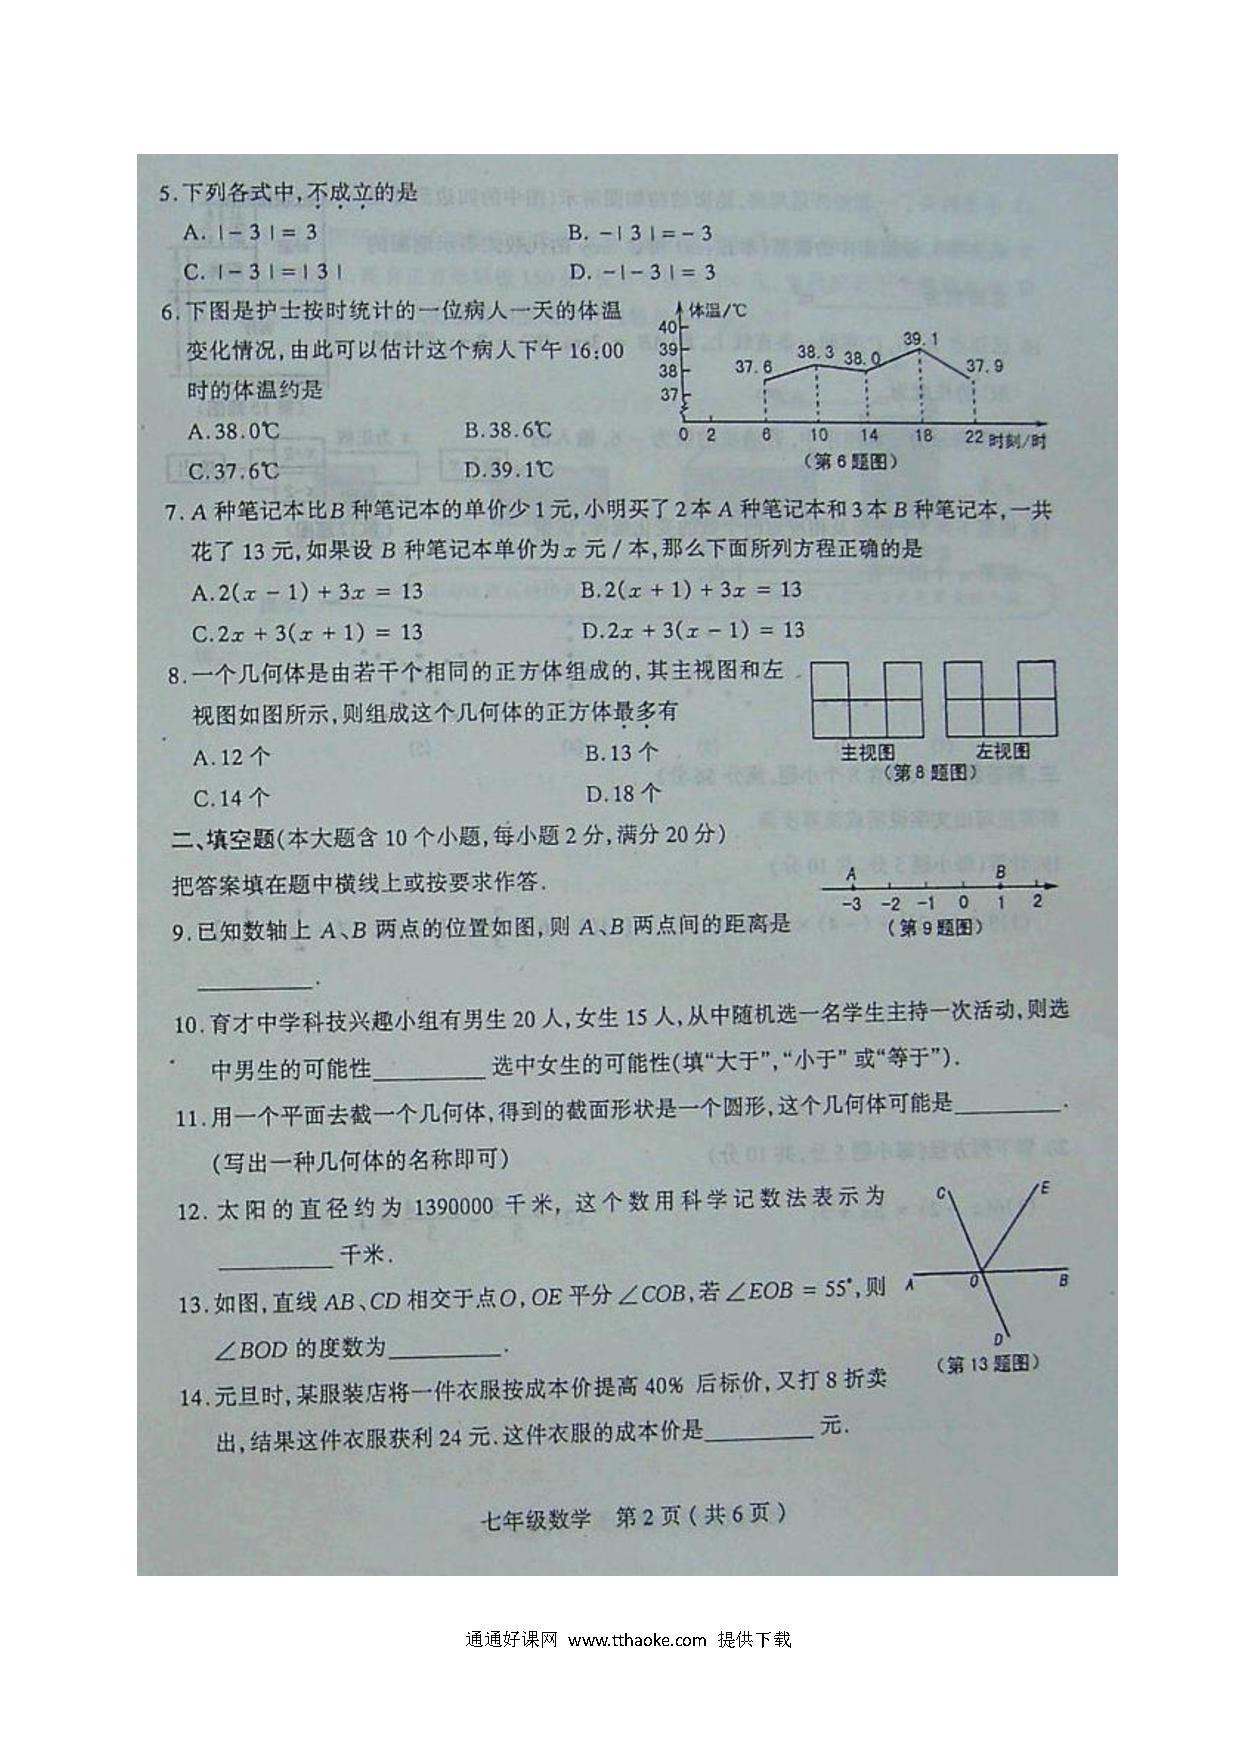 5.下列各式中,不成立的是
A. |-3|=3  B. -|3|=-3
C. |-3|=|3|  D. -|-3|=3
6.下图是护士按时统计的一位病人一天的体温
变化情况,由此可以估计这个病人下午16:00
时的体温约是
A.38.0℃  B.38.6℃
C.37.6℃  D.39.1℃
体温/℃
40
39
38
37
37.6 38.3 38.0 39.1 37.9
0 2 6 10 14 18 22 时刻/时
(第6题图)
7. A 种笔记本比B 种笔记本的单价少1元,小明买了2本 A 种笔记本和3本 B 种笔记本,一共
花了 13 元,如果设 B 种笔记本单价为x 元/本,那么下面所列方程正确的是
A.2(x-1)+3x=13  B.2(x+1)+3x=13
C.2x+3(x+1)=13  D.2x+3(x-1)=13
8.一个几何体是由若干个相同的正方体组成的,其主视图和左
视图如图所示,则组成这个几何体的正方体最多有
A.12个  B.13个
C.14个  D.18个
主视图 左视图
(第8题图)
二、填空题(本大题含 10 个小题,每小题2分,满分20分)
把答案填在题中横线上或按要求作答.
9.已知数轴上 A、B 两点的位置如图,则 A、B 两点间的距离是
________.
A B
-3 -2 -1 0 1 2
(第9题图)
10.育才中学科技兴趣小组有男生20人,女生15人,从中随机选一名学生主持一次活动,则选
中男生的可能性________选中女生的可能性(填“大于”,“小于”或“等于”).
11.用一个平面去截一个几何体,得到的截面形状是一个圆形,这个几何体可能是________.
(写出一种几何体的名称即可)
12.太阳的直径约为 1390000 千米,这个数用科学记数法表示为
________千米.
13.如图,直线 AB、CD 相交于点O,OE 平分∠COB,若∠EOB=55°,则
∠BOD 的度数为________.
C E
A O B
D
(第13题图)
14.元旦时,某服装店将一件衣服按成本价提高40% 后标价,又打8折卖
出,结果这件衣服获利24元.这件衣服的成本价是________元.
七年级数学 第2页(共6页)
通通好课网 www.tthaoke.com 提供下载